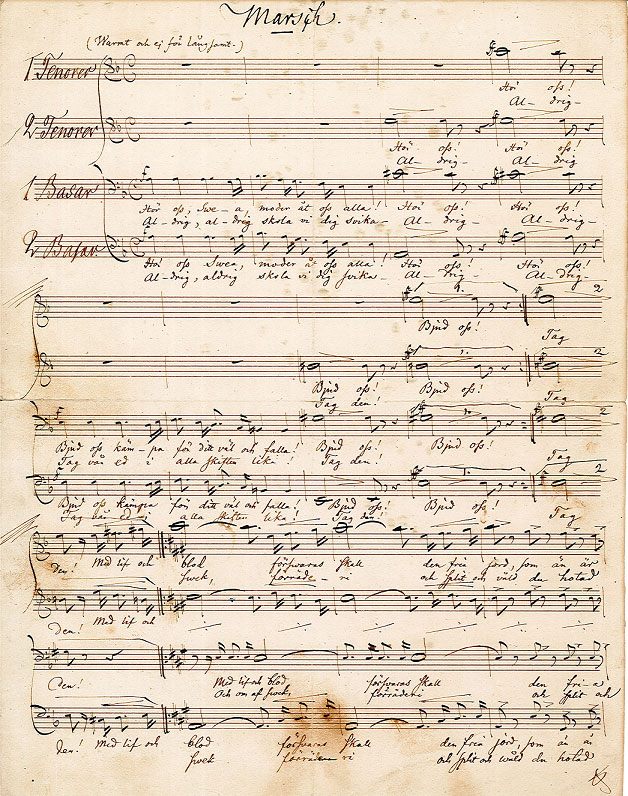 Marsch.
(Warmt och ej för långsamt.)
1 Tenorer
Hör oss!
Al- drig-
2 Tenorer
Hör oss! Hör oss!
Al- drig- Al- drig
1 Basar
Hör oss, Swe- a, moder åt oss alla! Hör oss! Hör oss!
Al- drig, al- drig skola vi dig svika- Al- drig- Al- drig-
2 Basar
Hör oss! Swea, moder åt oss alla! Hör oss! Hör oss!
Al- drig, aldrig skola vi dig svika- Al- drig- Al- drig-
Bjud oss! Tag
2
Bjud oss! Bjud oss! Tag
Tag den!
2
Bjud oss käm- pa för ditt väl och falla! Bjud oss! Bjud oss!
Tag vår ed i alla skiften lika! Tag den! Tag
2
Bjud oss kämpa för ditt väl och falla! Bjud oss! Bjud oss!
Tag vår ed i alla skiften lika! Tag den! Tag
2
Den! Med lif och blod försvaras skall den fria jord, som än är
swek, förråde vi och split och våld du hotad
Den! Med lif och
Den! Med lif och blod försvaras skall den fri-a
Och om af swek, förråde vi och split och
Den! Med lif och blod försvaras skall den fria jord, som än är
swek förråde vi och split och wåld du hotad